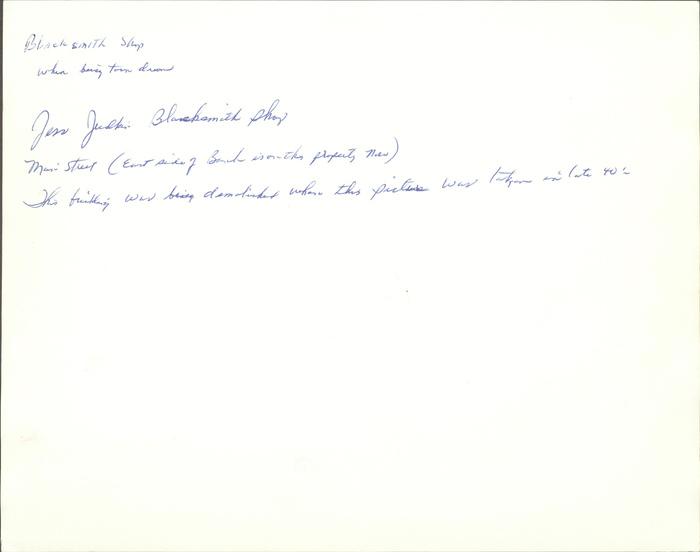 Blacksmith Shop
when being torn down
Jess Judkin Blacksmith Shop
Main Street (East side of Bank is on this property Now)
This building was being demolished when this picture was taken in late 40's